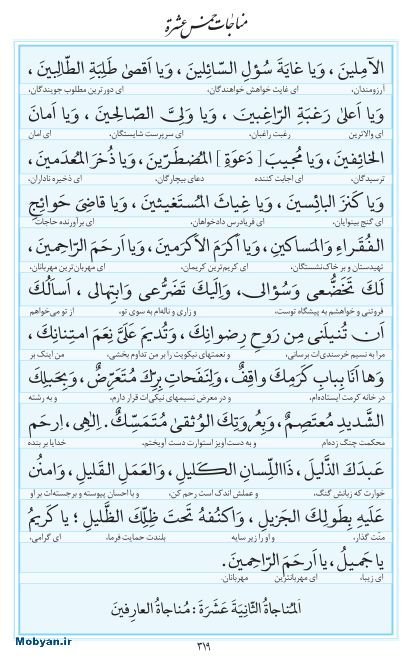 مناجات خمس عشرة
الآمِلينَ ، وَيا غايَةَ سُؤلِ السّائِلينَ ، وَيا اَقصىٰ طَلِبَةِ الطّالِبينَ ،
آرزومندان، ای غایت خواهش خواهندگان، ای دورترین مطلوب جویندگان،
وَيا اَعلىٰ رَغبَةِ الرّاغِبينَ ، وَيا وَلِيَّ الصّالِحينَ ، وَيا اَمانَ
ای والاترین رغبت راغبان، ای سرپرست شایستگان، ای امان
الخائِفينَ ، وَيا مُجيبَ [ دَعوَةِ ] المُضطَرّينَ ، وَيا ذُخرَ المُعدَمينَ ،
ترسیدگان، ای اجابت کننده دعای بیچارگان، ای ذخیره ناداران،
وَيا كَنزَ البائِسينَ ، وَيا غِياثَ المُستَغيثينَ ، وَيا قاضِيَ حَوائِجِ
ای گنج بینوایان، ای فریادرس دادخواهان، ای برآورنده حاجات
الفُقَراءِ وَالمَساكينِ ، وَيا اَكرَمَ الاَكرَمينَ ، وَيا اَرحَمَ الرّاحِمينَ ،
تهیدستان و بر خاک‌نشستگان، ای کریم‌ترین کریمان، ای مهربان‌ترین مهربانان،
لَكَ تَخَضُّعى وَسُؤالى، وَاِلَيكَ تَضَرُّعى وَابتِهالى ، اَسأَلُكَ
فروتنی و خواهشم به پیشگاه توست، و زاری و ناله‌ام به سوی تو، از تو می‌خواهم
اَن تُنيلَنى مِن رَوحِ رِضوانِكَ ، وَتُديمَ عَلَىَّ نِعَمَ امتِنانِكَ ،
مرا به نسیم خرسندی‌ات برسانی، و نعمتهای نیکویت را بر من تداوم بخشی، من اینک بر
وَها اَنَا بِبابِ كَرَمِكَ واقِفٌ، وَلِنَفَحاتِ بِرِّكَ مُتَعَرِّضٌ، وَبِحَبلِكَ
در خانه کرمت ایستاده‌ام، و در معرض نسیمهای نیکی‌ات قرار دارم، و به رشته
الشَّديدِ مُعتَصِمٌ، وَبِعُروَتِكَ الوُثقىٰ مُتَمَسِّكٌ. اِلٰهى، اِرحَم
محکمت چنگ زده‌ام و به دست‌آویز استوارت دست آویختم. خدایا بر بنده
عَبدَكَ الذَّليلَ ، ذَااللِّسانِ الكَليلِ ، وَالعَمَلِ القَليلِ ، وَامنُن
خوارت که زبانش گنگ، و عملش اندک است رحم کن، و با احسان پیوسته و برجسته‌ات بر او
عَلَيهِ بِطَولِكَ الجَزيلِ ، وَاكنُفهُ تَحتَ ظِلِّكَ الظَّليلِ ؛ يا كَريمُ
منت گذار، و او را زیر سایه بلندت حمایت فرما، ای گرامی،
يا جَميلُ ، يا اَرحَمَ الرّاحِمينَ .
ای زیبا، ای مهربانترین مهربانان.
اَلمُناجاةُ الثّانِيَةَ عَشَرَةَ : مُناجاةُ العارِفينَ
۳۱۹
Mobyan.ir